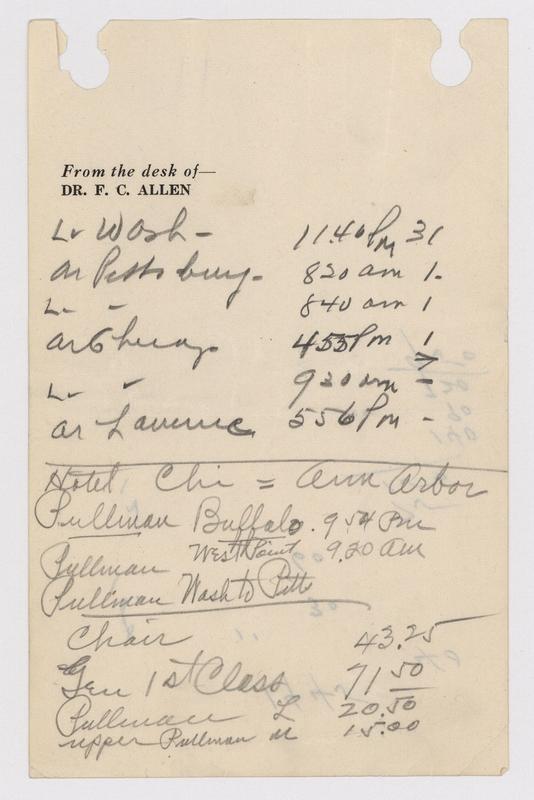 From the desk of—
DR. F. C. ALLEN
Lv Wash - 11.40 Pm 31
Ar Pittsburg - 820 am 1-
Lv " 840 am 1
Ar Chicago 455 Pm 1
Lv " 920 am -
Ar Lawrence 556 Pm -
Hotel Chi = Ann Arbor
Pullman Buffalo. 9 54 Pm
Pullman West Point 9.20 Am
Pullman Wash to Pitts
Chair 43.25
Gen 1st Class 71 50
Pullman L 20.50
upper Pullman u 15.00